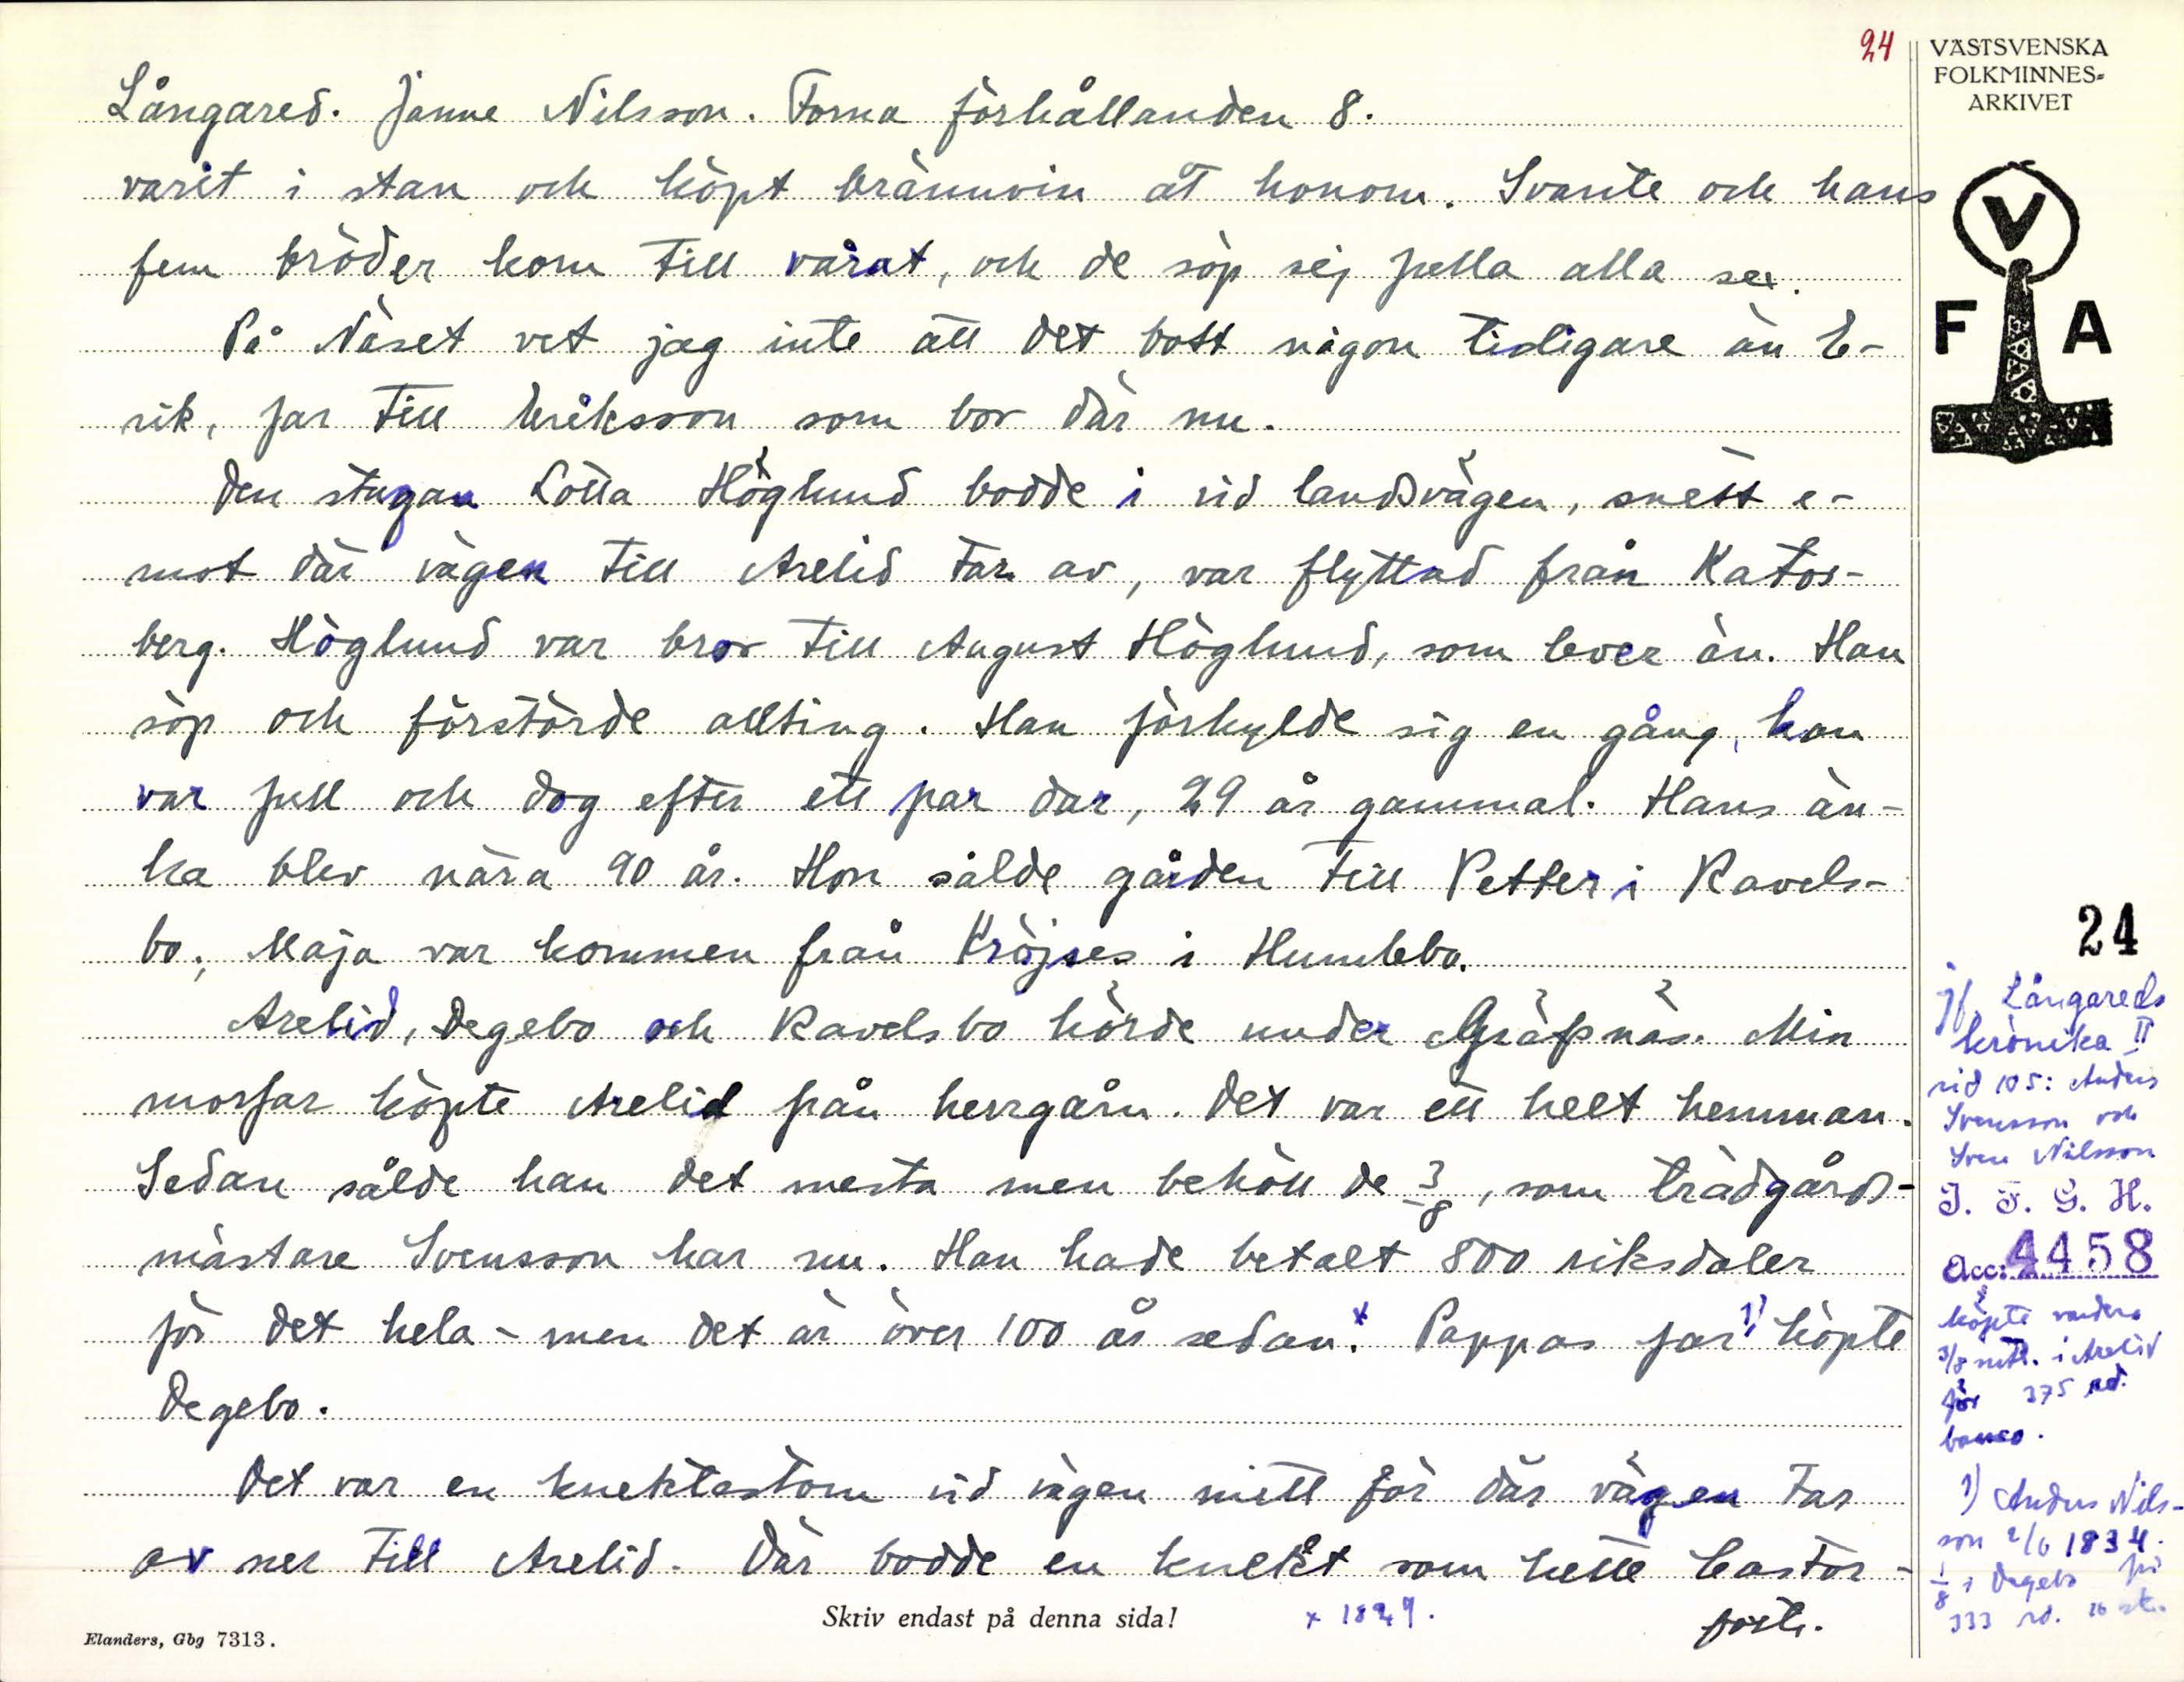 24
VÄSTSVENSKA
FOLKMINNES-
ARKIVET
V
F A
Långared. Janne Nilsson. Forna förhållanden 8.
varit i stan och köpt brännvin åt honom. Svante och hans
fem bröder kom till vårat, och de söp sej fulla alla sex.
På Näset vet jag inte att det bott någon tidigare än E-
rik, far till Eriksson som bor där nu.
Den stugan Lotta Höglund bodde i vid landsvägen, snett e-
mot där vägen till Arelid tar av, var flyttad från Katos-
berg. Höglund var bror till August Höglund, som lever än. Han
söp och förstörde allting. Han förkylde sig en gång, han
var full och dog efter ett par dar, 29 år gammal. Hans än-
ka blev nära 90 år. Hon sålde gården till Petter i Ravels-
bo; Maja var kommen från Kröjses i Humlebo.
Arelid, Degebo och Ravelsbo hörde under Gräfsnäs. Min
morfar köpte Arelid från herrgårn. Det var ett helt hemman.
Sedan sålde han det mesta men behöll de 3/8, som trädgårds-
mästare Svensson har nu. Han hade betalt 800 riksdaler
för det hela - men det är över 100 år sedan.x Pappas far 1) köpte
Degebo.
Det var en knektastom vid vägen mitt för där vägen tar
av ner till Arelid. Där bodde en knekt som hette Castor -
forts.
x 1829.
Skriv endast på denna sida!
Elanders, Gbg 7313.
24
jf. Långareds
krönika II
sid 105: Anders
Svensson och
Sven Nilsson
I. F. G. H.
Acc: 4458
köpte vardera
3/8 mtl. i Arelid
för 375 rd.
banco.
1) Anders Nils-
son 2/6 1834.
1/8 i Degebo för
333 rd. 16 sk.